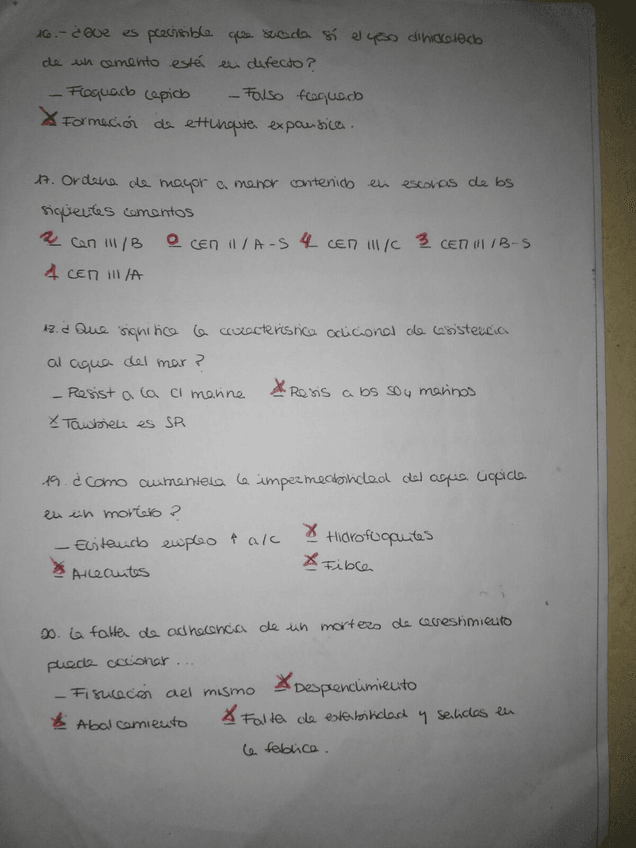 16.- ¿Que es previsible que suceda si el yeso dihidratado
de un cemento está en defecto?
— Fraguado rapido — Falso fraguado
X Formación de ettringita expansiva.
17. Ordena de mayor a menor contenido en escorias de los
siguientes cementos
2 CEM III/B 0 CEM II/A-S 4 CEM III/C 3 CEM III/B-S
1 CEM III/A
18. ¿Que significa la caracteristica adicional de resistencia
al agua del mar?
— Resist a la Cl marina X Resis a los SO4 marinos
X Tambien es SR
19. ¿Como aumentaria la impermeabilidad del agua liquida
en un mortero?
— Evitando empleo ↑ a/c X Hidrofugantes
X Aireantes X Fibra
20. La falta de adherencia de un mortero de revestimiento
puede ocasionar...
— Fisuración del mismo X Desprendimiento
X Abolcamiento X Falta de estabilidad y salidas en
la fabrica.